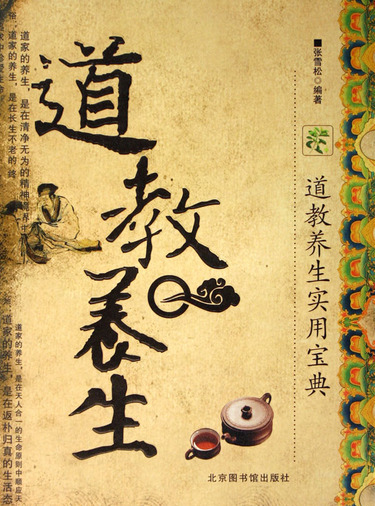 ■张雪松◎编著
道教养生实用宝典
道教养生
道家的养生，是在清净无为的精神
道家的养生，是在长生不老的
道家的养生，是在天人合一的生命原则中顺应天
道家的养生，是在返朴归真的生活态
北京图书馆出版社